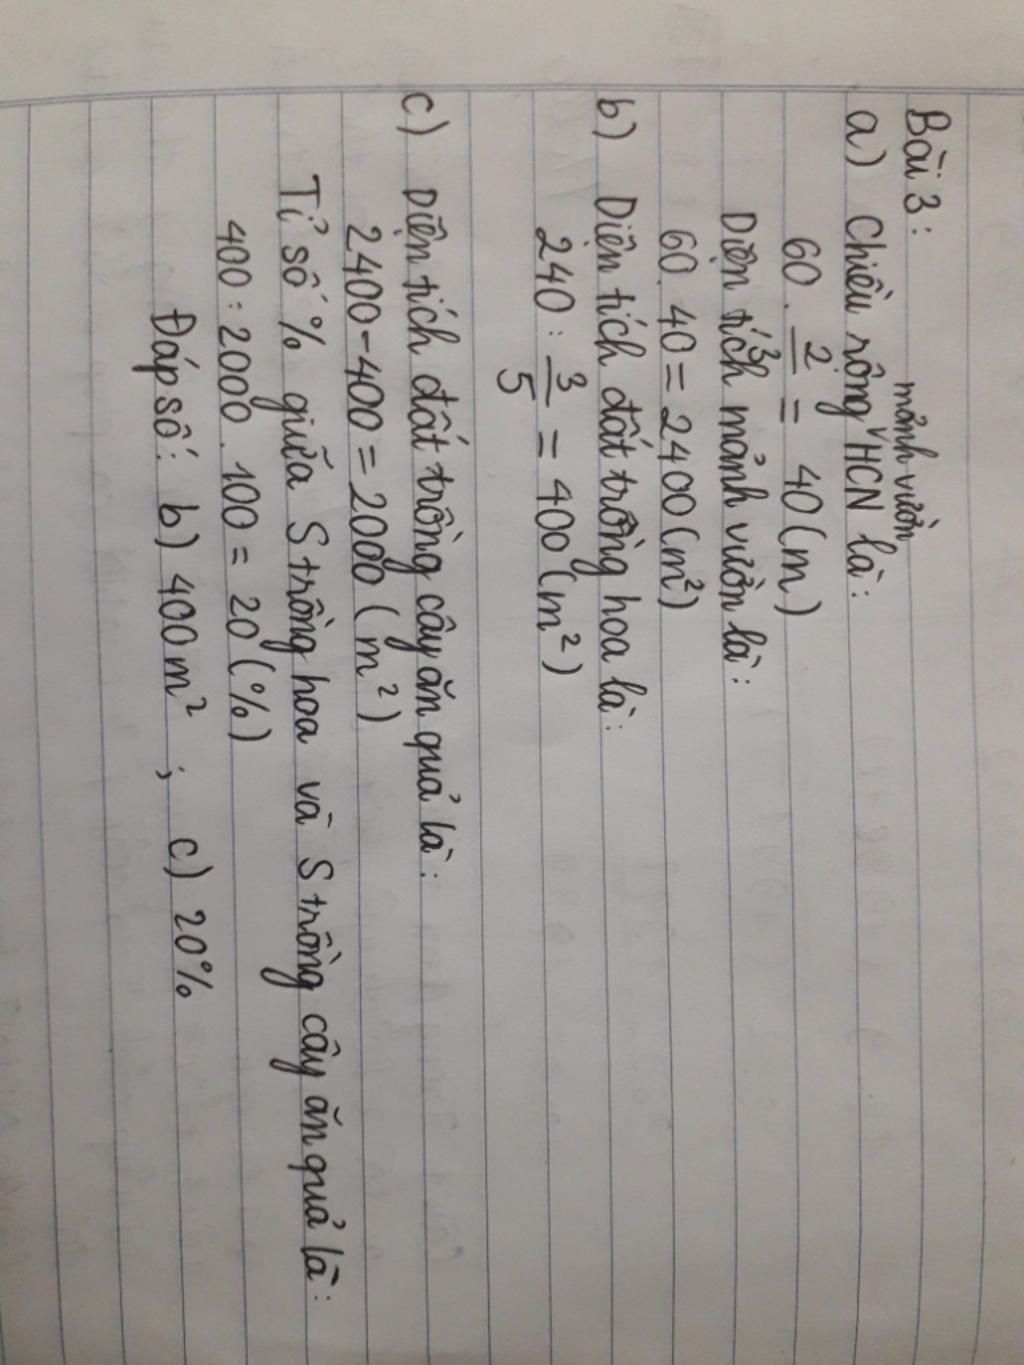 Bài 3:
mảnh vườn
a) Chiều rộng HCN là:
60 . 2/3 = 40 (m)
Diện tích mảnh vườn là:
60 . 40 = 2400 (m²)
b) Diện tích đất trồng hoa là:
240 : 3/5 = 400 (m²)
c) Diện tích đất trồng cây ăn quả là:
2400 - 400 = 2000 (m²)
Tỉ số % giữa S trồng hoa và S trồng cây ăn quả là:
400 : 2000 . 100 = 20 (%)
Đáp số: b) 400m² ; c) 20%